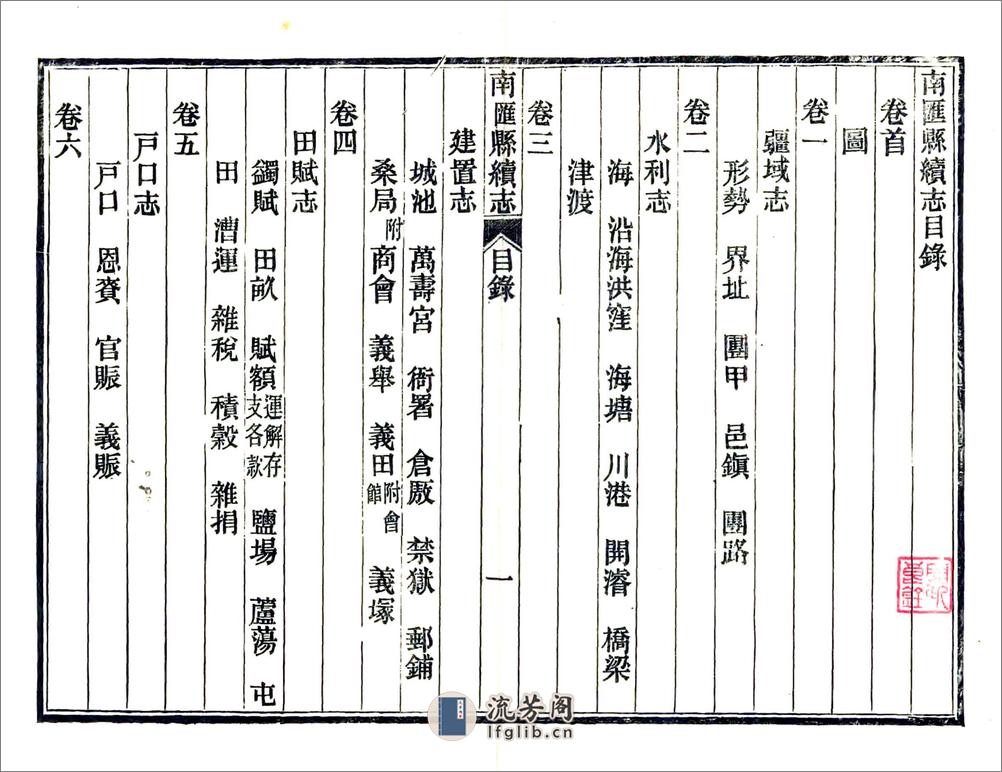 南匯縣續志目錄
卷首
圖
卷一
疆域志
形勢 界址 團甲 邑鎮 團路
卷二
水利志
海 沿海洪窪 海塘 川港 開濬 橋梁
津渡
卷三
南匯縣續志 目錄 一
建置志
城池 萬壽宮 衙署 倉厫 禁獄 郵鋪
桑局附商會 義舉 義田附會館 義塚
卷四
田賦志
蠲賦 田畝 賦額運解存支各款 鹽場 蘆蕩 屯
田 漕運 雜稅 積穀 雜捐
卷五
戸口志
戸口 恩賚 官賑 義賑
卷六
流芳阁
lfglib.cn